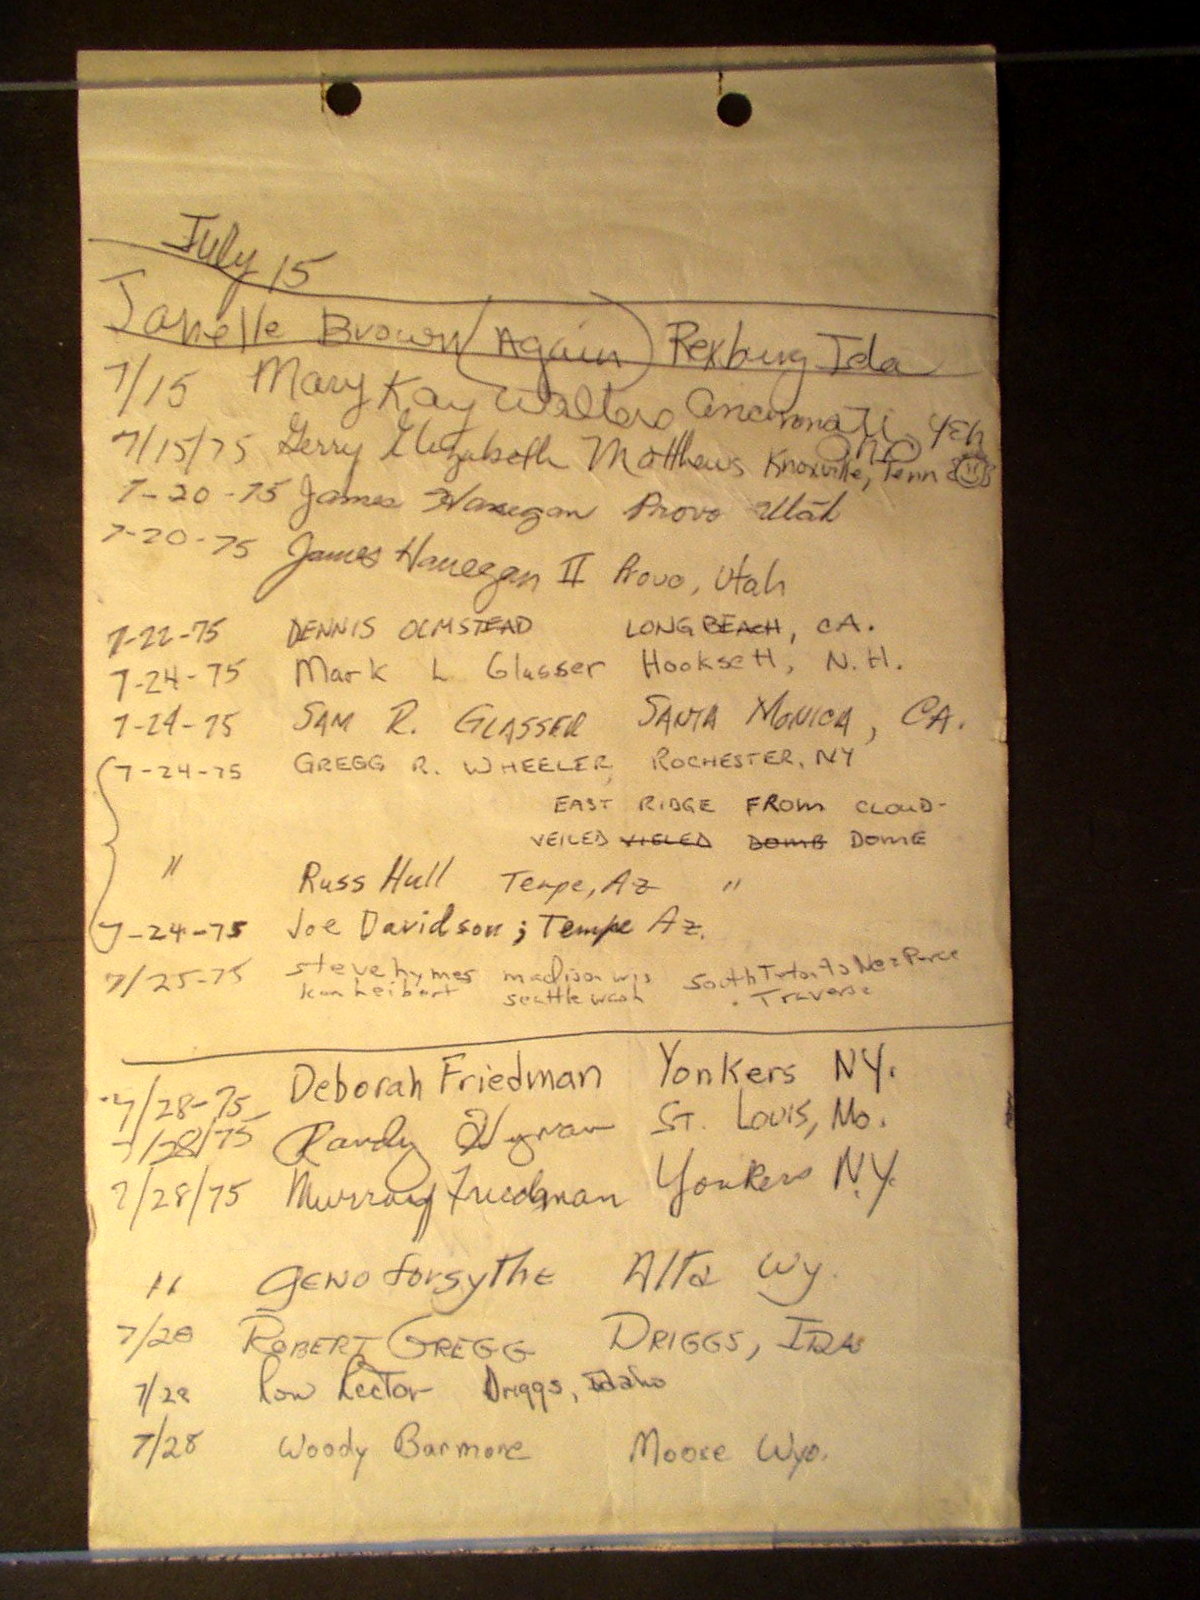 July 15
Janelle Brown (Again) Rexburg Ida
7/15 Mary Kay Walters Cincinnati
7/15/75 Gerry Elizabeth Matthews Knoxville, Tenn
7-20-75 James Hanegan Provo Utah
7-20-75 James Hanegan II Provo, Utah
7-22-75 DENNIS OLMSTEAD LONG BEACH, CA.
7-24-75 Mark L Glasser Hooksett, N.H.
7-24-75 SAM R. GLASSER SANTA MONICA, CA.
7-24-75 GREGG R. WHEELER, ROCHESTER, NY
EAST RIDGE FROM CLOUD-
VEILED VIELED DOMB DOME
" Russ Hull Tempe, Az "
7-24-75 Joe Davidson; Tempe Az.
7/25-75 steve hymes madison wis South Teton to Nez Perce
ken leibert seattle wash Traverse
7/28-75 Deborah Friedman Yonkers NY.
7/28/75 Randy Wyman ST. LOUIS, MO.
7/28/75 Murray Friedman Yonkers N.Y.
" GENO forsythe Alta Wy.
7/28 ROBERT GREGG DRIGGS, IDA
7/28 Rector Driggs, Idaho
7/28 Woody Barmore Moose Wyo.